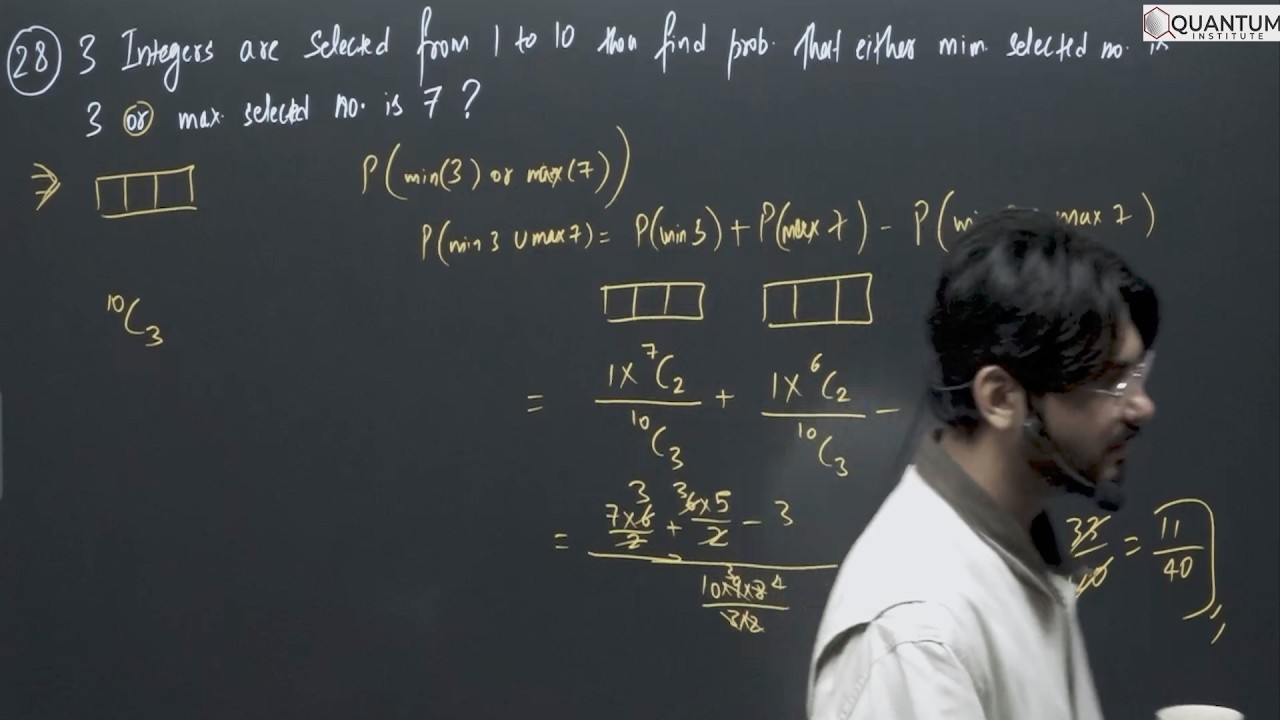 QUANTUM
INSTITUTE
28 3 Integers are selected from 1 to 10 then find prob. that either min. selected no. is
3 or max. selected no. is 7 ?
⇒ P(min(3) or max(7))
P(min 3 ∪ max 7) = P(min 3) + P(max 7) - P( max 7)
10C3
= 1×7C2/10C3 + 1×6C2/10C3 -
= (7×6/2 + 6×5/2 - 3)/(10×9×8/3×2)
= 11/40